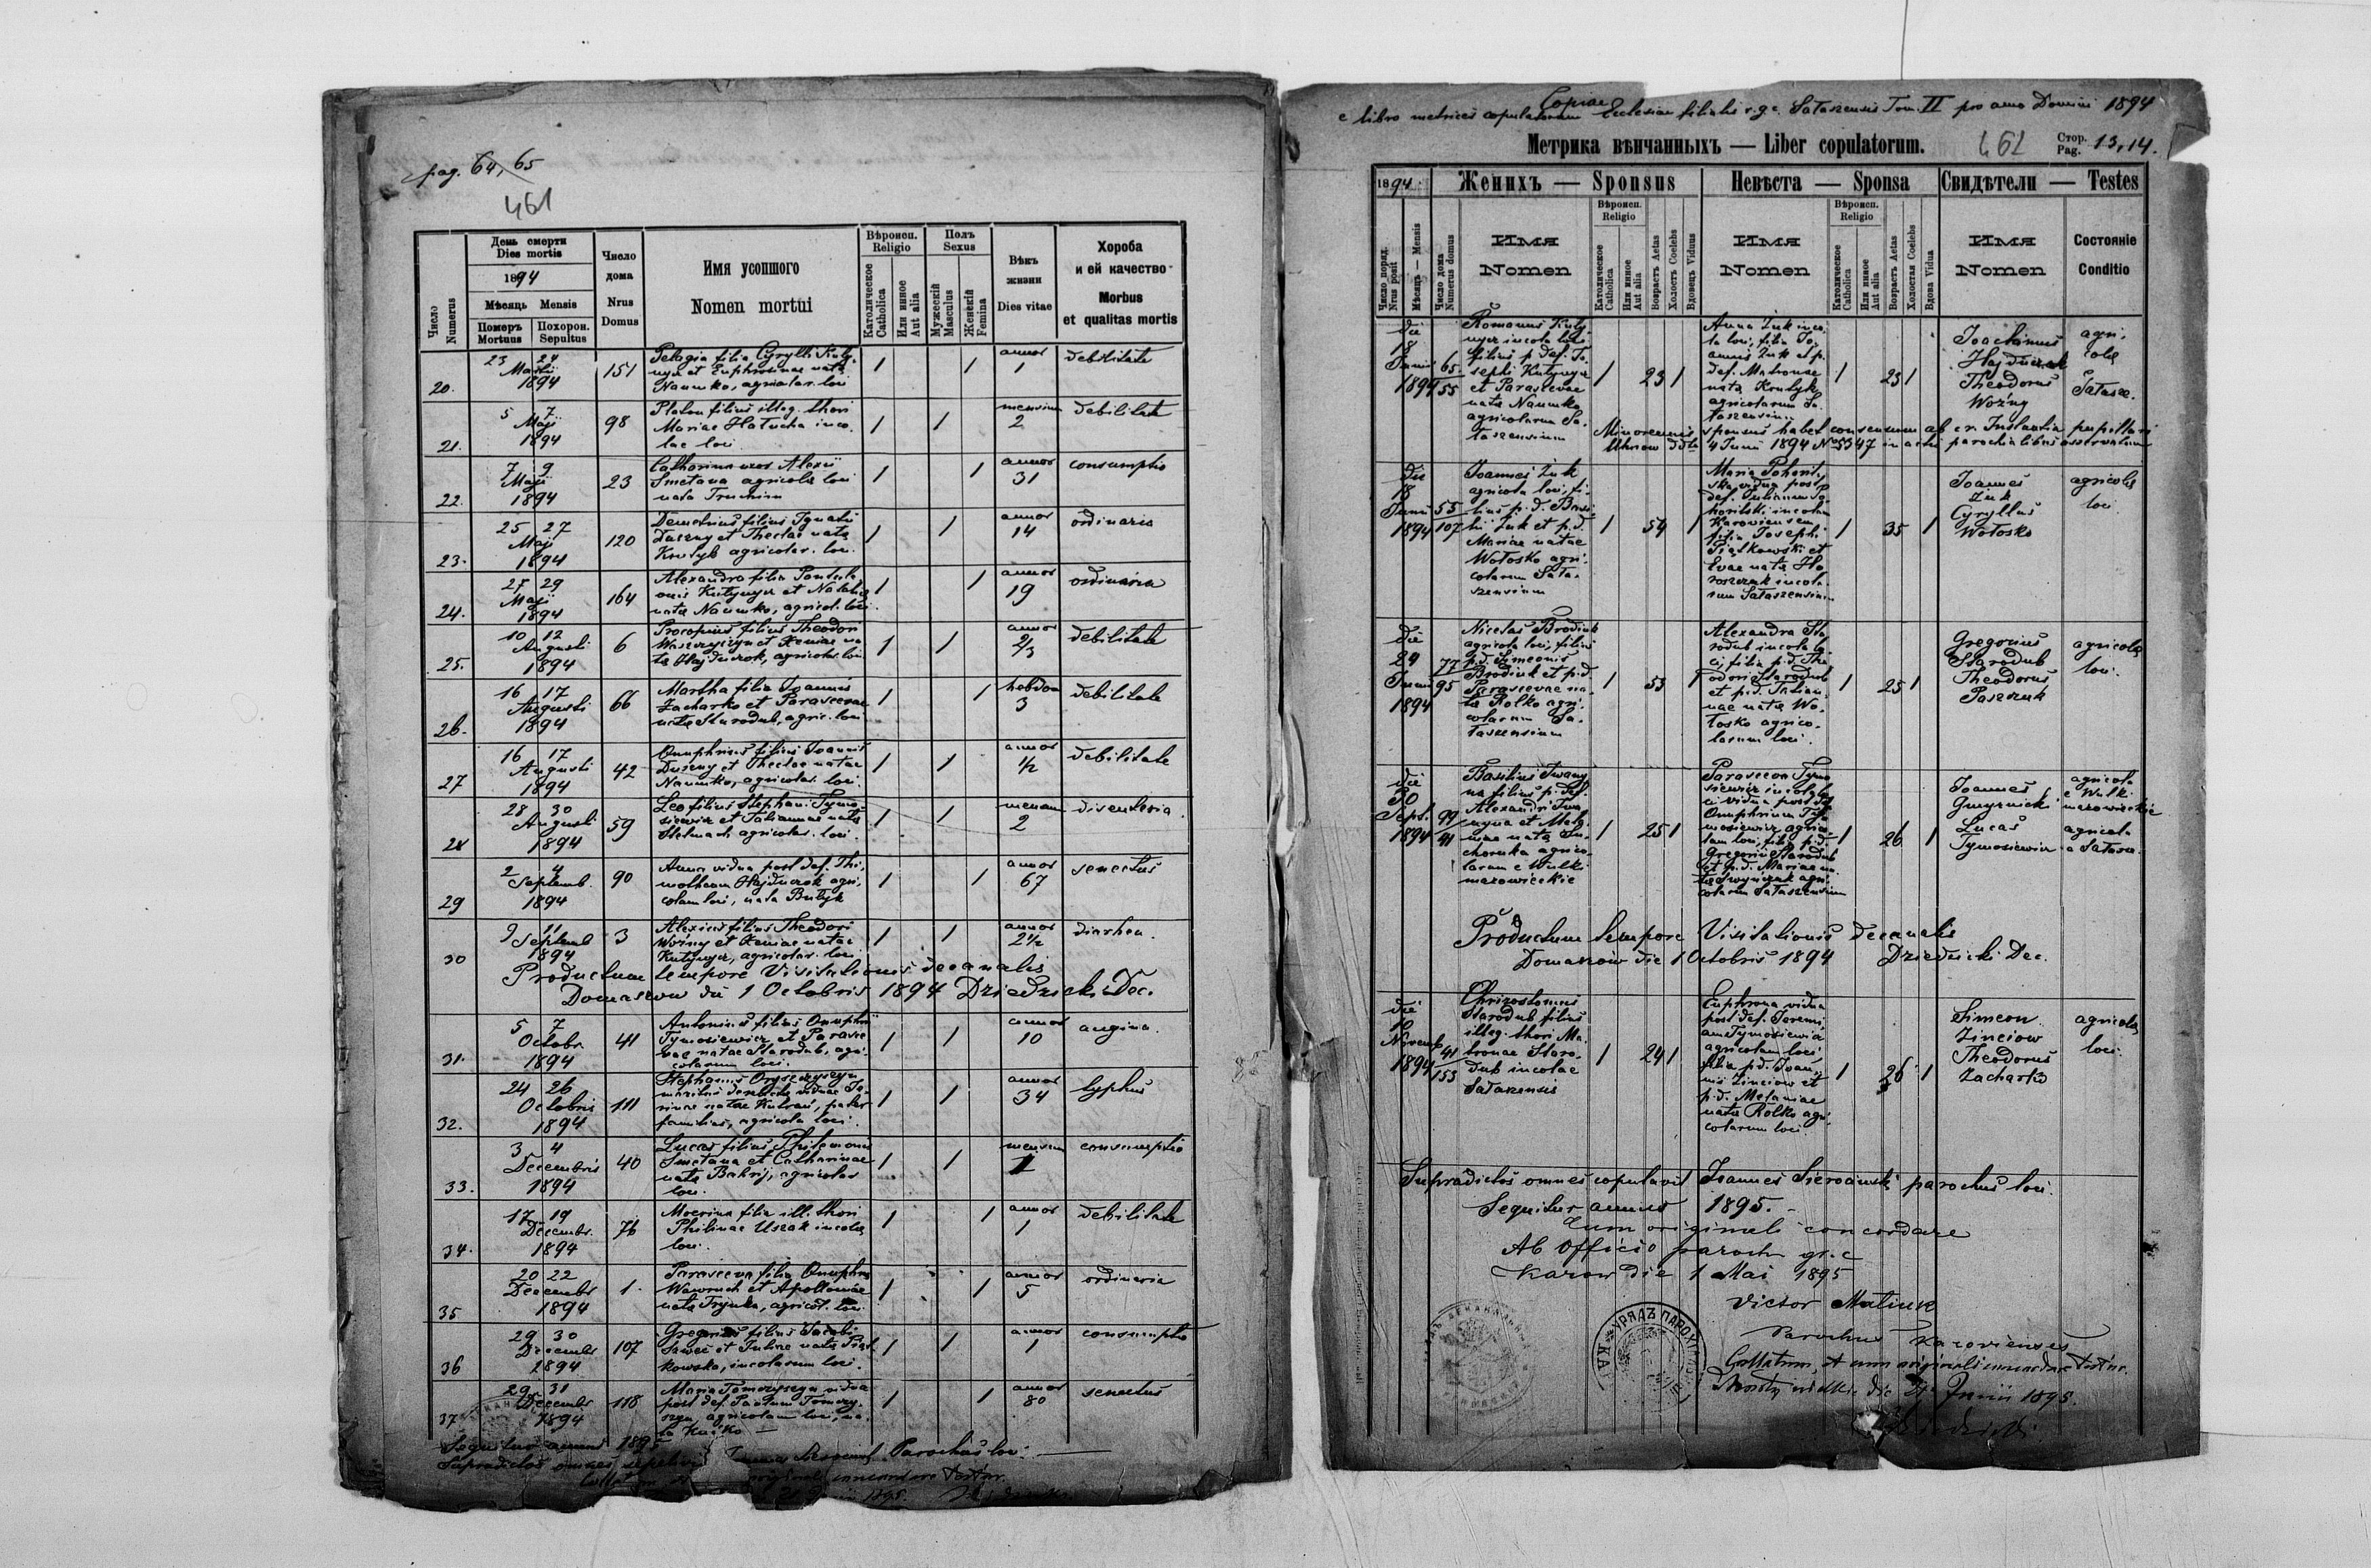 pag. 64, 65
461
Число
Numerus
День смерти
Dies mortis
1894
Мѣсяць Mensis
Померъ
Mortuus
Похорон.
Sepultus
Число
дома
Nrus
Domus
Имя усопшого
Nomen mortui
Вѣроисп.
Religio
Католическое
Catholica
Или инное
Aut alia
Полъ
Sexus
Мужескій
Masculus
Женскій
Femina
Вѣкъ
жизни
Dies vitae
Хороба
и ей качество
Morbus
et qualitas mortis
20. 23 24 Martii 1894 151
Pelagia filia Cyrylli Kuty-
nyer et Euphrosinae nata
Naumko, agricolar. loci
1 1 annor 1 debilitate
21. 5 7 Maji 1894 98
Platon filius illeg. thori
Mariae Hatucha inco-
lae loci
1 1 mensium 2 debilitate
22. 7 9 Maji 1894 23
Catharina uxor Alexii
Smetana agricolae loci
nata
1 1 annor 31 consumptio
23. 25 27 Maji 1894 120
Demetrius filius Ignatii
Duszny et Theclae nata
agricolar. loci
1 1 annor 14 ordinaria
24. 27 29 Maji 1894 164
Alexandra filia Pantele
onis Kutynyer et Nataliae
nata Naumko, agricol. loci
1 1 annor 19 ordinaria
25. 10 12 Augusti 1894 6
Procopius filius Theodori
et Xeniae na
ta Hajduczok, agricolar. loci
1 1 annor 2/3 debilitate
26. 16 17 Augusti 1894 66
Martha filia Joannis
Zacharko et Parascevae
nata Starodub, agric. loci
1 1 hebdom 3 debilitate
27 16 17 Augusti 1894 42
Onuphrius filius Joannis
Duszny et Theclae natae
Naumko, agricolar. loci
1 1 annor 1/2 debilitate
28 28 30 Augusti 1894 59
Leo filius Stephani Tymo-
siewicz et Tatiannae nata
agricolar. loci
1 1 mensium 2 disenteria
29 2 4 Septemb. 1894 90
Anna vidua post def. Thi-
motheum Hajduczok agri-
colam loci, nata Butyk
1 1 annor 67 senectus
30 9 11 Septemb 1894 3
Alexius filius Theodori
Woźny et Xeniae natae
Kutynyer, agricolar. loci
1 1 annor 2 1/2 diarhea.
Productum tempore Visitationis decanalis
Domaszow die 1 Octobris 1894 Dziedzicki Dec.
31. 5 7 Octobr. 1894 41
Antonius filius Onuphrii
Tymosiewicz et Parasce
vae natae Starodub, agri-
colarum loci.
1 1 annor 10 angina.
32. 24 26 Octobris 1894 111
Stephanus Oryszczyszyn
maritus viduae
natae pater
familias, agricola loci.
1 1 annor 34 typhus
33. 3 4 Decembris 1894 40
Lucas filius Philemonis
Smetana et Catharinae
nata Bahrij, agricolar
loci.
1 1 mensium 1 consumptio
34. 17 19 Decembr. 1894 76
filia ill. thori
Philinae Uszak incolae
loci.
1 1 annor 1 debilitate
35 20 22 Decembr 1894 1.
Parasceva filia Onuphrii
Wawruch et Apolloniae
nata Hrynka, agricol. loci
1 1 annor 5 ordinaria
36 29 30 Decembr 1894 107
Gregorius filius Jacobi
Sawec et Juliae nata Piąt-
kowska, incolarum loci.
1 1 annor 1 consumptio
37. 29 31 Decembr 1894 118
Maria Tomczyszyn vidua
post def. Paulum Tomczy-
szyn, agricolam loci, na-
ta Kućko
1 1 annor 80 senectus
Sequitur annus 1895
Supradictos omnes sepelivit Joannes Parochus loci.
originali concordare testor.
1895.
Copiae
e libro metrices copulatorum Ecclesiae filialis r.g.c. Sataszensis Tom. II pro anno Domini 1894
Метрика вѣнчанныхъ — Liber copulatorum.
462
Стор.
Pag. 13, 14.
1894
Женихъ — Sponsus
Невѣста — Sponsa
Свидѣтели — Testes
Число поряд.
Nrus posit
Мѣсяць — Mensis
Число дома
Numerus domus
Имя
Nomen
Вѣроисп.
Religio
Католическое
Catholica
Или инное
Aut alia
Возрастъ Aetas
Холостъ Coelebs
Вдовецъ Viduus
Имя
Nomen
Вѣроисп.
Religio
Католическое
Catholica
Или инное
Aut alia
Возрастъ Aetas
Холостая Coelebs
Вдова Vidua
Имя
Nomen
Состояніе
Conditio
die 18 Junii 1894 65 55
Romanus Kuty-
nyer incola loci
filius p. def. Jo-
sephi Kutynyer
et Parascevae
nata Naumko
agricolarum Sa-
taszensium
1 23 1
Anna Żuk inco-
la loci, filia Jo-
annis Żuk et p.
def. Matronae
nata
agricolarum Sa-
taszensium
1 23 1
Joachimus
Hajduczok
Theodorus
Woźny
agri-
colae
Satasz.
Minorennis sponsus habet consensum ab c. r. Instantia pupillari
Uhnow ddto 4 Junii 1894 No 3347 in actis parochialibus asservatum
die 18 Junii 1894 55 107
Joannes Żuk
agricola loci, fi-
lius p. d. Basi-
lii Żuk et p. d.
Mariae natae
Wołosko agri-
colarum Sata-
szensium
1 54 1
Maria Pohoril-
ska, vidua post
def. Julianum Po
horilski incolam
Karoviensem
filia Josephi
Piątkowski et
Evae nata Ho
roszczak incola-
rum Sataszensium
1 35 1
Joannes
Żuk
Cyryllus
Wołosko
agricolae
loci.
die 24 Junii 1894 77 95
Nicetas Brodiuk
agricola loci, filius
p. d. Simeonis
Brodiuk et p. d.
Parascevae na-
ta Rolko agri-
colarum Sa-
taszensium
1 53 1
Alexandra Sta
rodub incola lo-
ci, filia p. d. The
odori Starodub
et p. d. Tatian-
nae nata Wo-
łosko agrico-
larum loci.
1 25 1
Gregorius
Starodub
Theodorus
Paseczuk
agricolae
loci.
die 30 Sept. 1894 99 41
Basilius Iwany-
na filius p. def.
Alexandri Iwa
nyna et Mela-
niae nata Su-
chorska agrico-
larum e Wulki
mazowieckie
1 25 1
Parasceva Tymo
siewicz incola lo-
ci vidua post def.
Onuphrium Ty-
mosiewicz agrico-
lam loci, filia p. d.
Gregorii Starodub
et p. d. Mariae na-
ta agri-
colarum Sataszensium
1 26 1
Joannes
Lucas
Tymosiewicz
agricola
e Wulki
mazowieckie
agricola
e Satasze
Productum tempore Visitationis decanalis
Domaszow die 1 Octobris 1894 Dziedzicki Dec.
die 10 Novemb 1894 41 153
Chrizostomus
Starodub filius
illeg. thori Ma-
tronae Staro-
dub incolae
Sataszensis
1 24 1
Euphrona vidua
post def. Jeremi-
am Tymosiewicz
agricolam loci
filia p. d. Joan-
nis Zinciow et
p. d. Melaniae
nata Rolko agri-
colarum loci.
1 26 1
Simeon
Zinciow
Theodorus
Zacharko
agricolae
loci.
Supradictos omnes copulavit Joannes parochus loci.
Sequitur annus 1895.
Cum originali concordare
Ab Officio paroch gr. c
Karow die 1 Mai 1895
Victor Matiuk
Parochus Karoviensis
УРЯДЪ ПАРОХ
Collatum, et cum originali concordare testor.
Mosty wielkie die 21 Junii 1895.